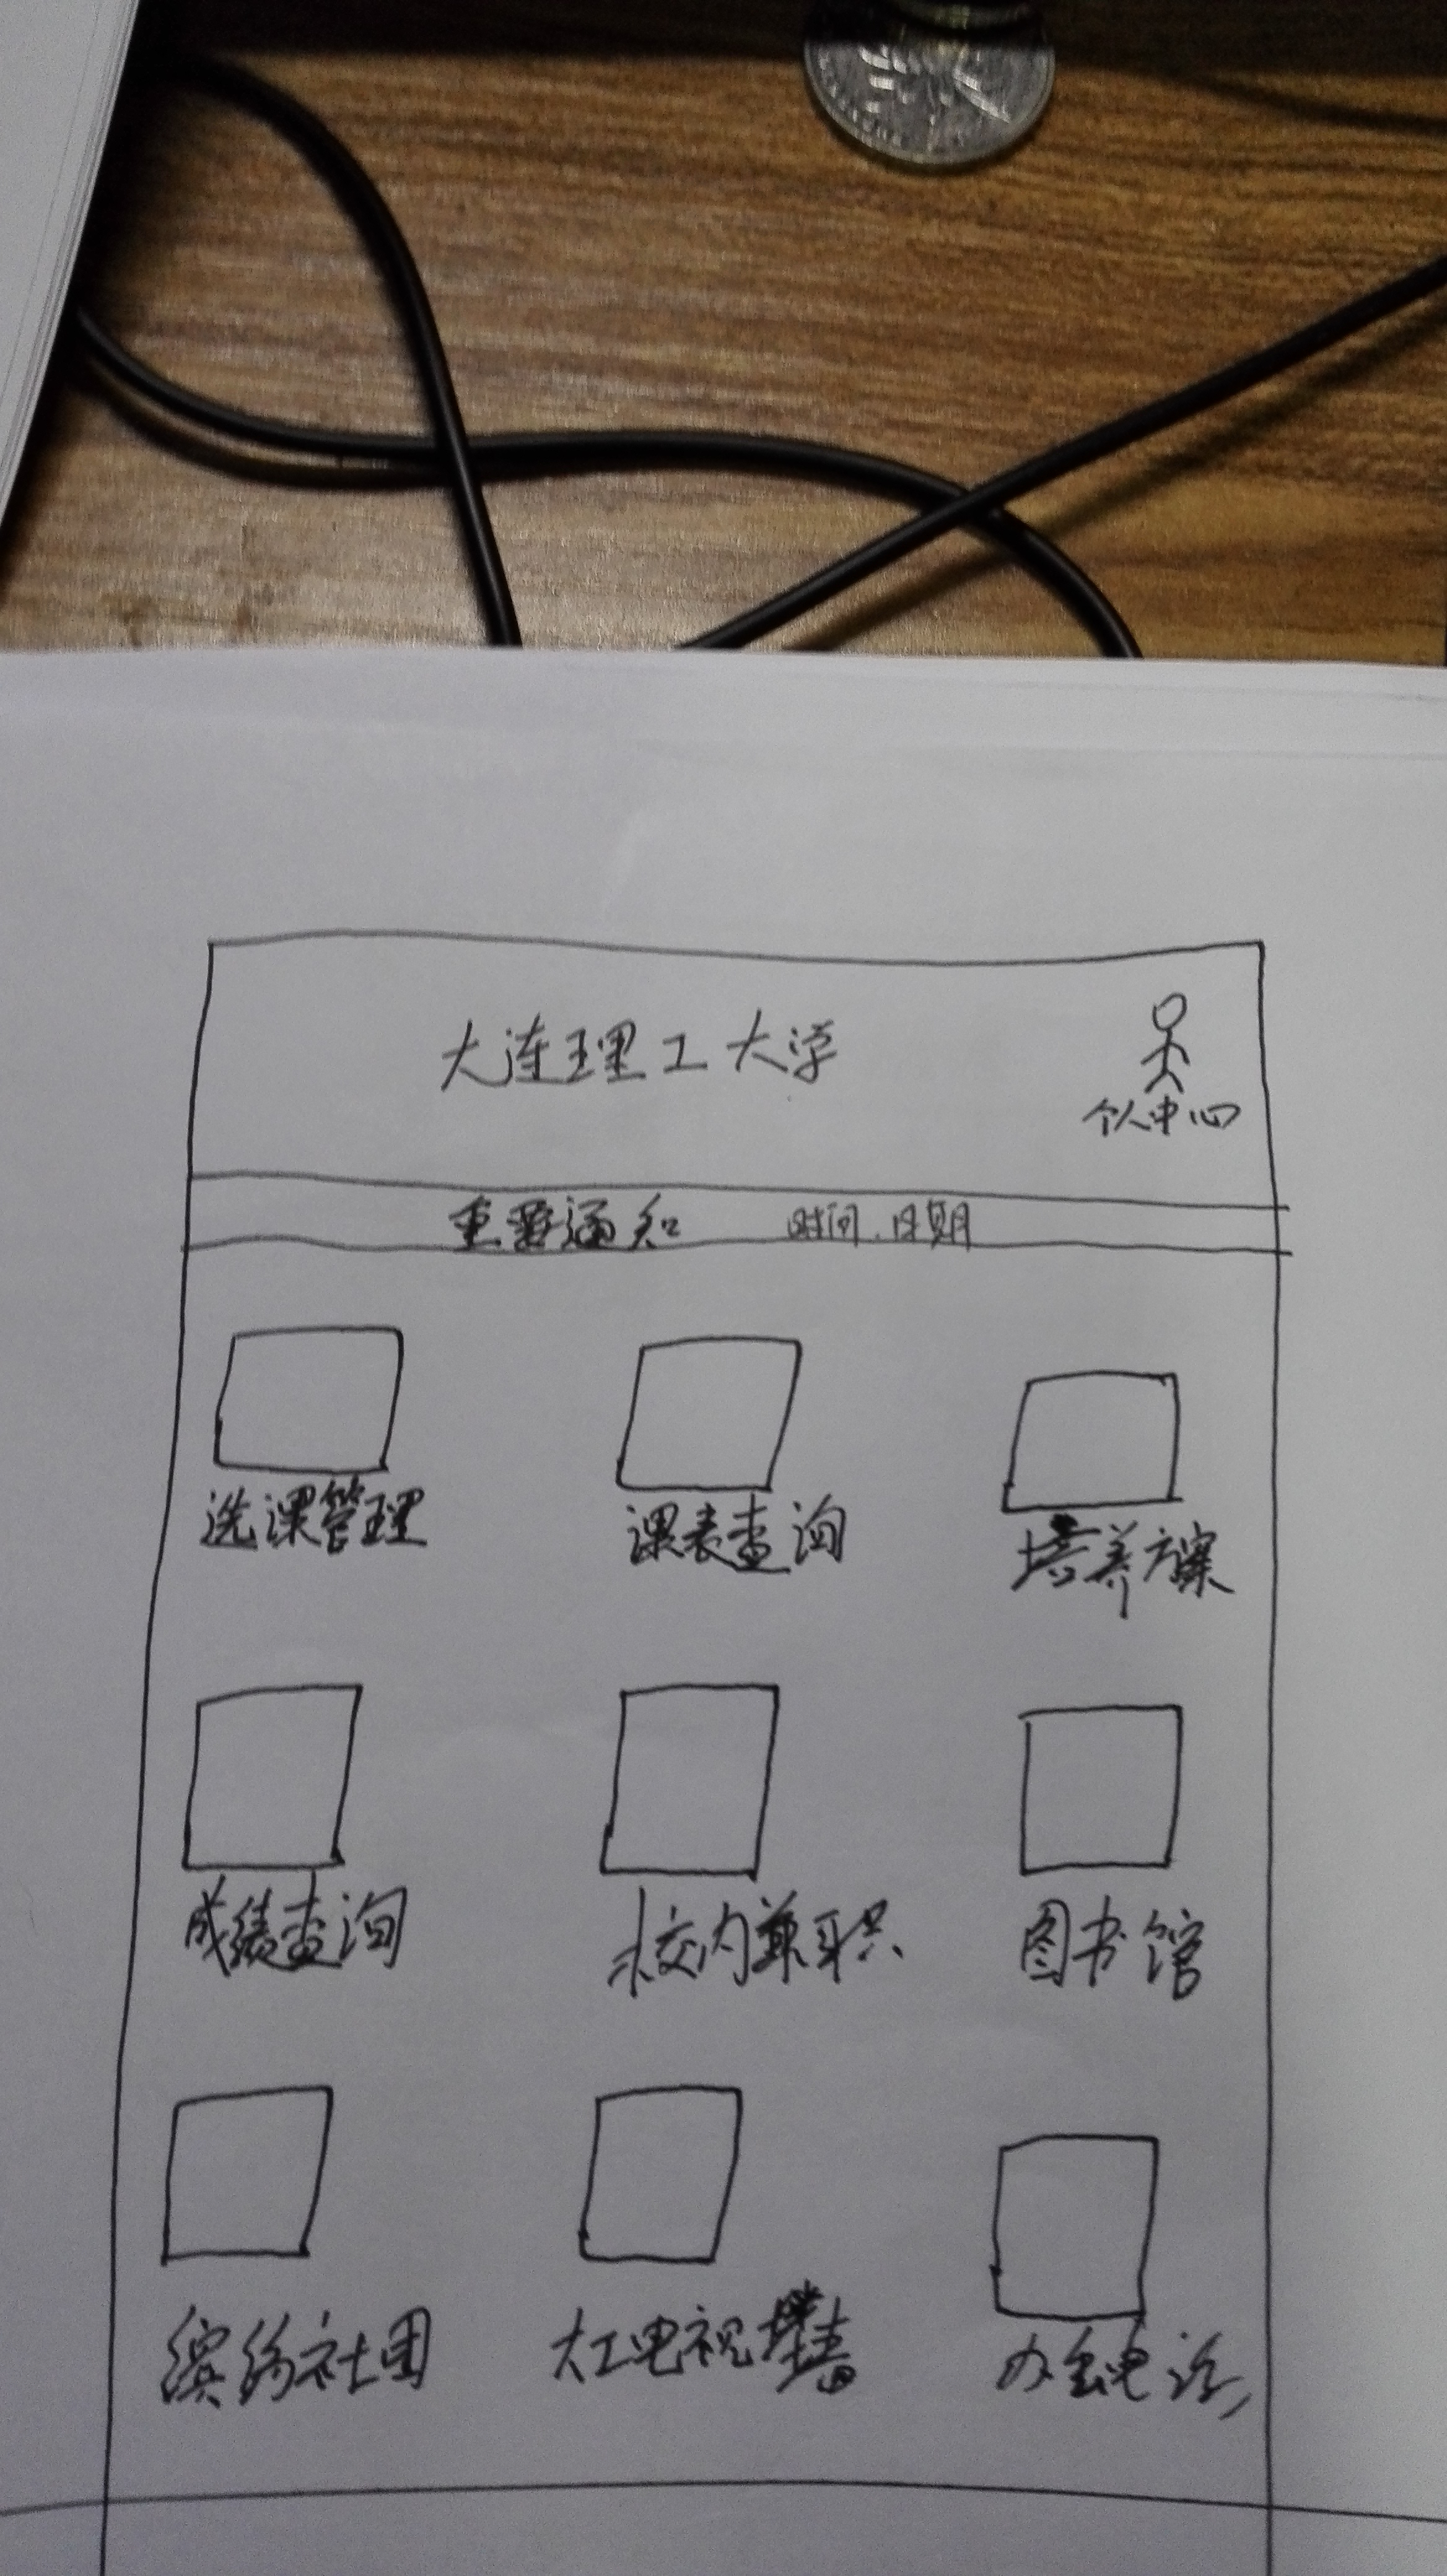 大连理工大学
个人中心
重要通知 时间.日期
选课管理 课表查询 培养方案
成绩查询 校内兼职 图书馆
缤纷社团 大工电视墙 办公电话